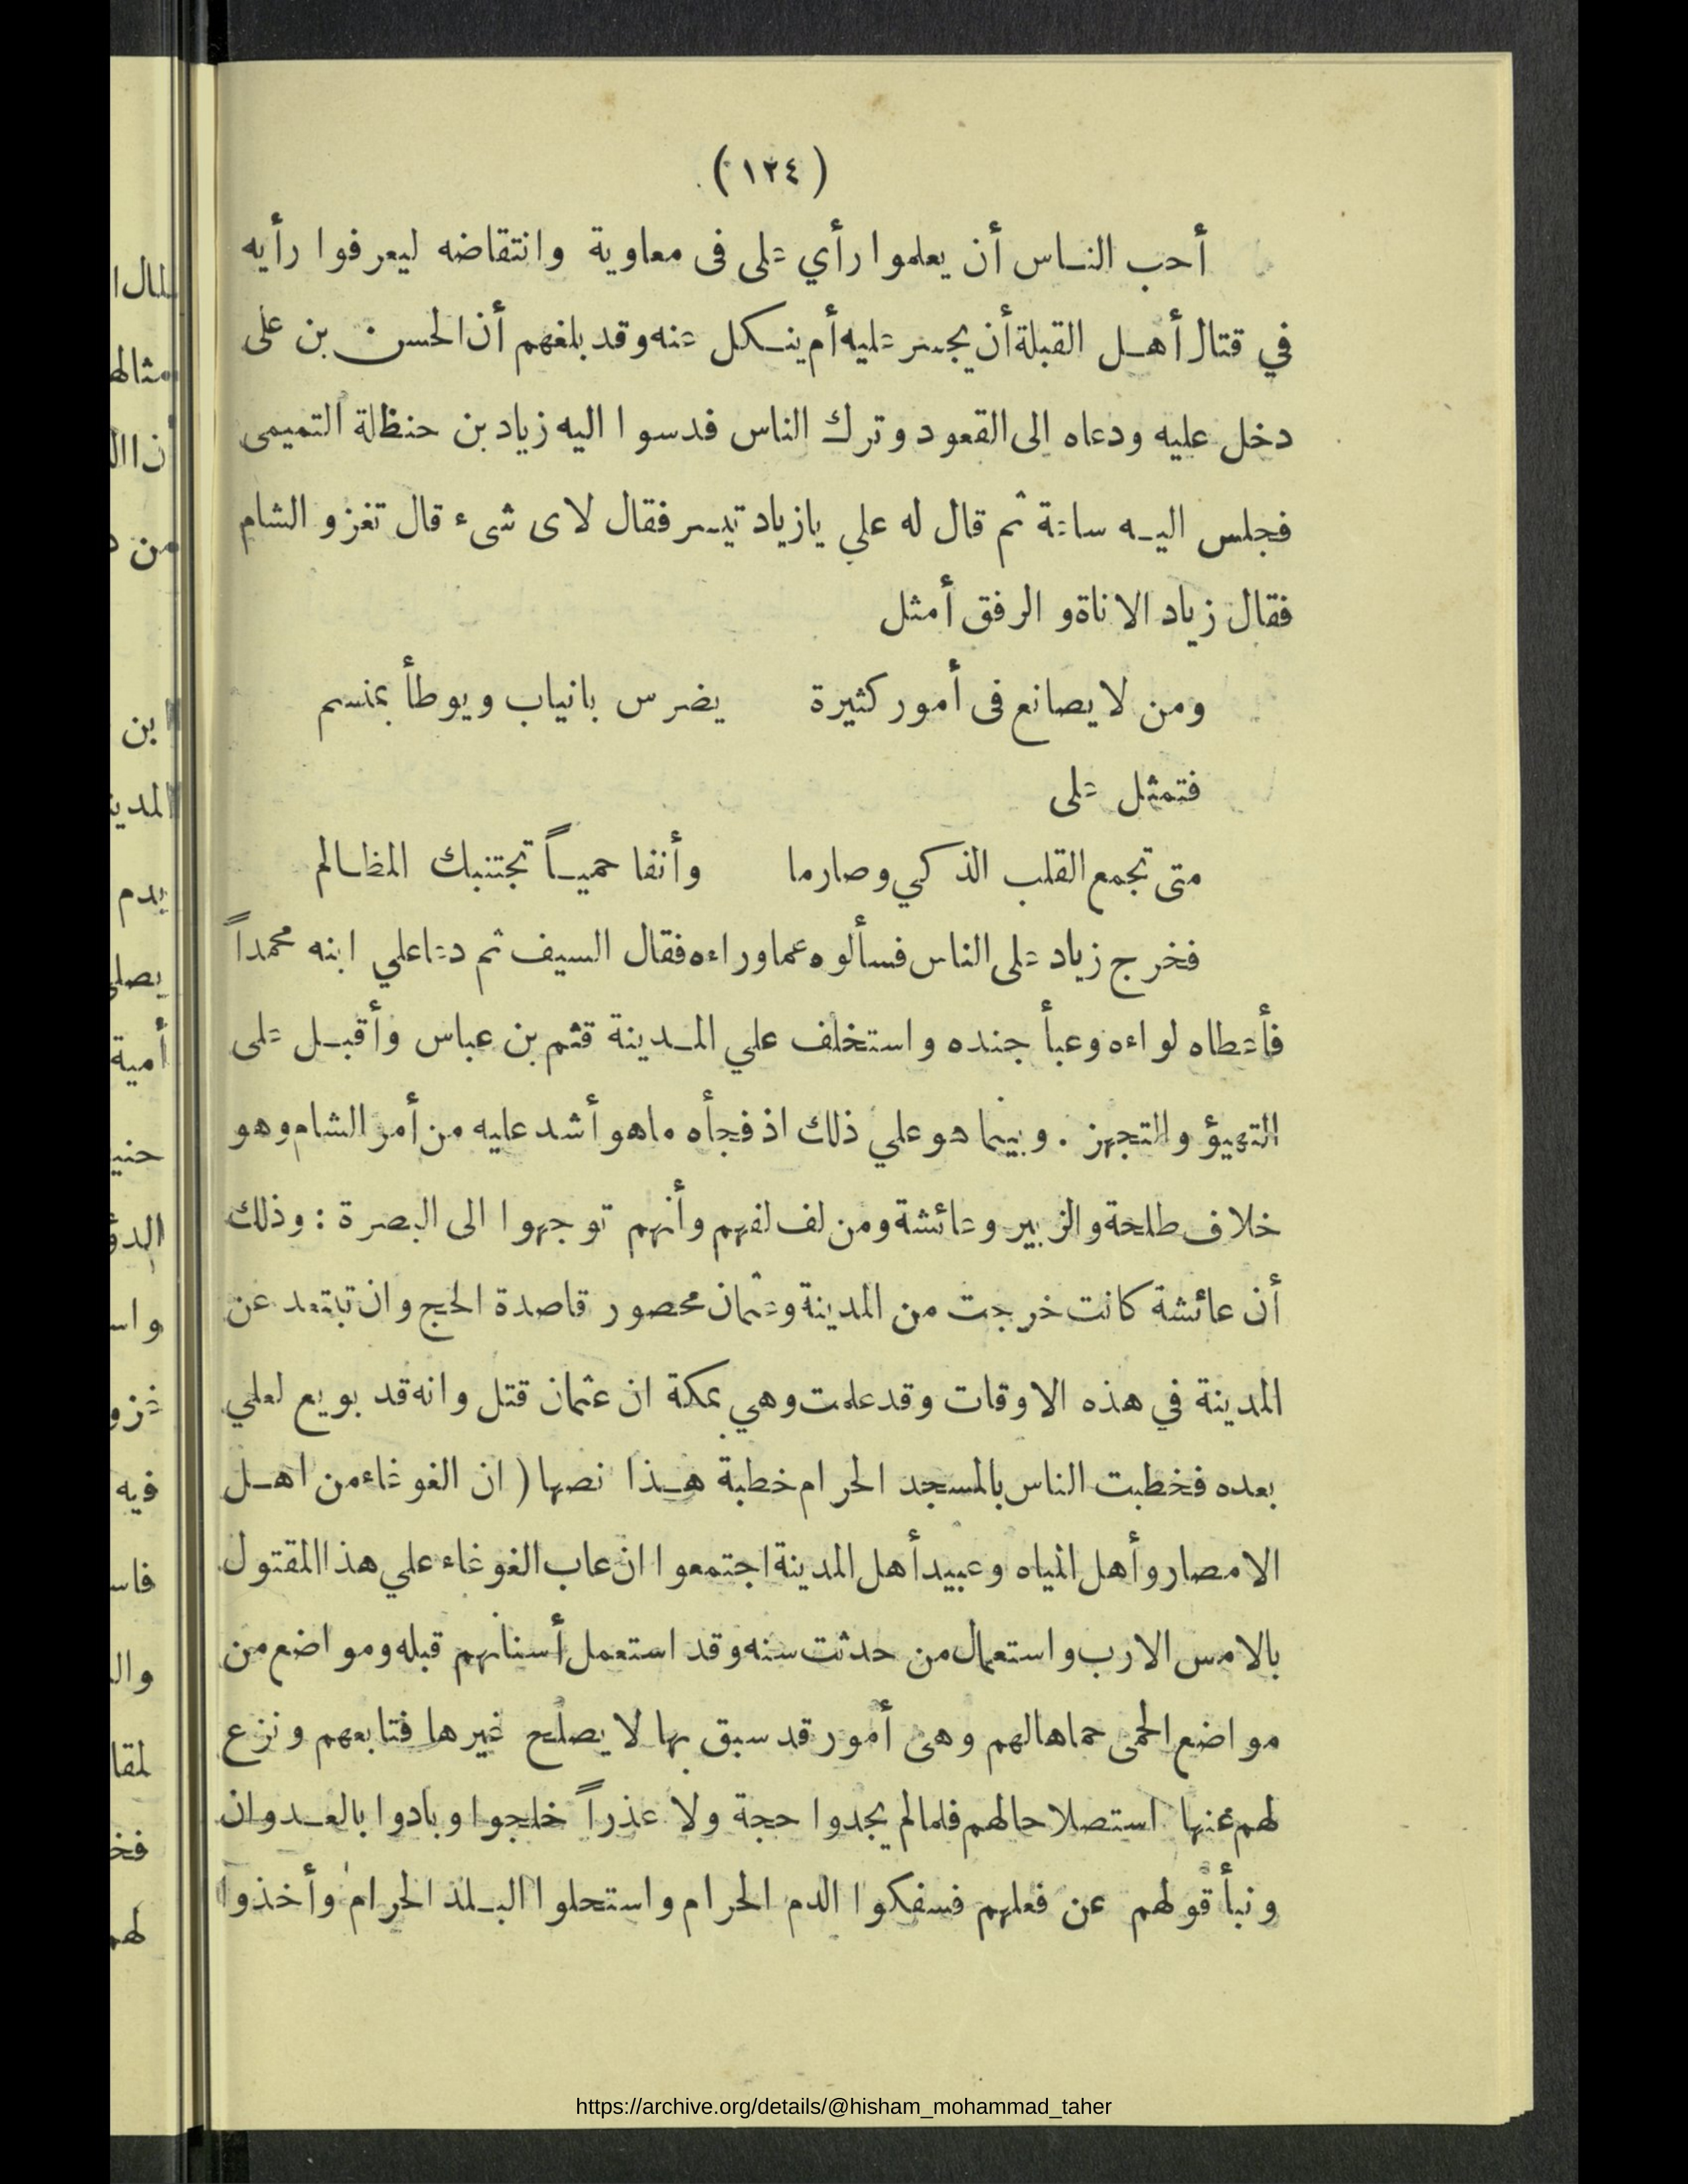 (١٢٤)
أحب الناس أن يعلموا رأي على فى معاوية وانتقاضه ليعرفوا رأيه
في قتال أهل القبلة أن يجسر عليه أم ينكل عنه وقد بلغهم أن الحسن بن على
دخل عليه ودعاه الى القعود وترك الناس فدسوا اليه زياد بن حنظلة التميمى
فجلس اليه ساعة ثم قال له علي يازياد تيسر فقال لاى شىء قال تغزو الشام
فقال زياد الاناة والرفق أمثل
ومن لا يصانع فى أمور كثيرة يضرس بانياب ويوطأ بمنسم
فتمثل على
متى تجمع القلب الذكي وصارما وأنفا حمياً تجتنبك المظالم
فخرج زياد على الناس فسألوه عما وراءه فقال السيف ثم دعا علي ابنه محمداً
فأعطاه لواءه وعبأ جنده واستخلف علي المدينة قثم بن عباس وأقبل على
التهيؤ والتجهز . وبينما هو علي ذلك اذ فجأه ماهو أشد عليه من أمر الشام وهو
خلاف طلحة والزبير وعائشة ومن لف لفهم وأنهم توجهوا الى البصرة : وذلك
أن عائشة كانت خرجت من المدينة وعثمان محصور قاصدة الحج وان تبتعد عن
المدينة في هذه الاوقات وقد علمت وهي بمكة ان عثمان قتل وانه قد بويع لعلي
بعده فخطبت الناس بالمسجد الحرام خطبة هذا نصها ( ان الغوغاء من اهل
الامصار وأهل المياه وعبيد أهل المدينة اجتمعوا ان عاب الغوغاء علي هذا المقتول
بالامس الارب واستعمال من حدثت سنه وقد استعمل أسنانهم قبله ومواضع من
مواضع الحمى حماها لهم وهى أمور قد سبق بها لا يصلح غيرها فتابعهم ونزع
لهم عنها استصلاحا لهم فلما لم يجدوا حجة ولا عذراً خلجوا وبادوا بالعدوان
ونبأ قولهم عن فعلهم فسفكوا الدم الحرام واستحلوا البلد الحرام وأخذوا
https://archive.org/details/@hisham_mohammad_taher